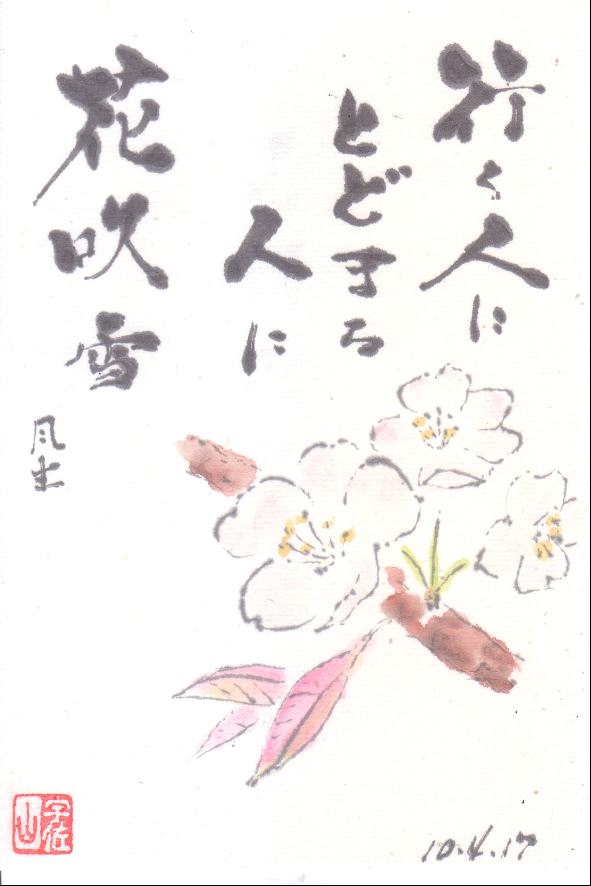 行く人に
とどまる
人に
花吹雪
風土
10.4.17
宇佐
山